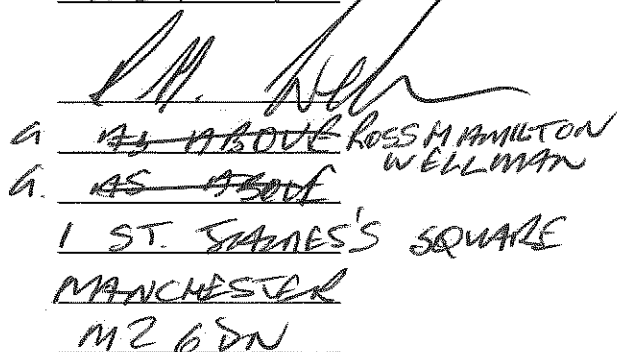 R. H. Well
G AS ABOVE ROSS HAMILTON
WELLMAN
G. AS ABOVE
1 ST. JAMES'S SQUARE
MANCHESTER
M2 6DN